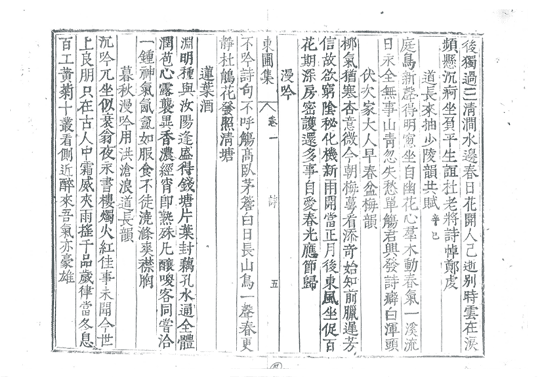 後獨過三淸澗水邊春日花開人已逝別時雲在淚
頻懸沉痾坐負平生誼杜老將詩悼鄭虔
道長來抽少陵韻共賦
庭鳥新聲得明窓坐自幽花心羣木動春氣一溪流
日永全無事山靑忽失愁單觴君興發詩癖白渾頭
伏次家大人早春盆梅韻
椰氣猶寒杏意微今朝梅蕚看添奇始知前臘遲芳
信故欲窮陰秘化機新雨開當正月後東風坐促百
花期深房密護還多事自愛春光應節歸
漫吟
東圃集 卷一 詩 五
不吟詩句不呼觴高臥茅簷白日長山鳥一聲春更
靜杜鵑花發照淸塘
蓮葉酒
淵明種與汝陽逢盛得錢塘片葉封藕孔水通全體
潤苞心露襲異香濃經宵卽熟殊凡釀喚客同嘗洽
一鍾神氣氤氳如服食不徒澆滌來襟胸
暮秋漫吟用洪滄浪道長韻
沉吟兀坐似衰翁夜永書樓燭火紅佳事未聞今世
上良朋只在古人中霜威夾雨摧千品歲律當冬息
百工黃菊十叢看側近醉來吾氣亦豪雄